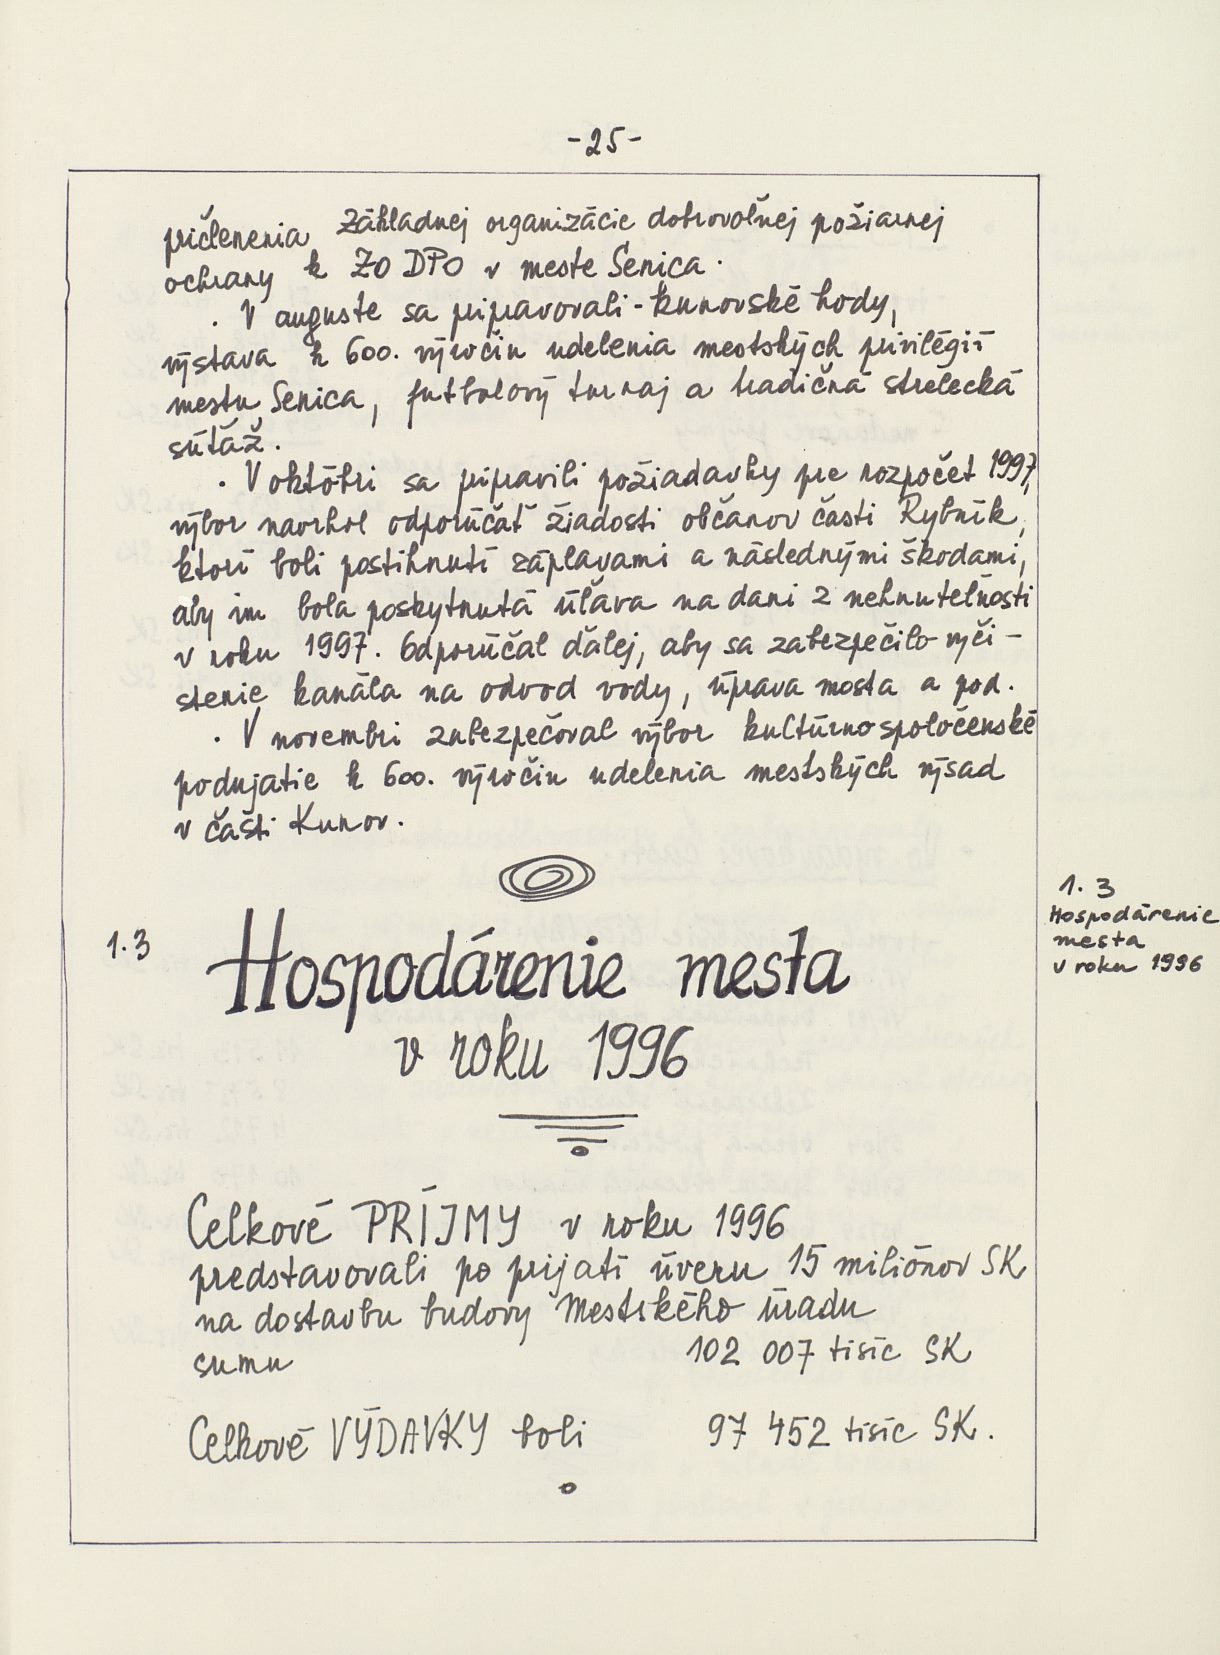 -25-
pričlenenia Základnej organizácie dobrovoľnej požiarnej
ochrany k ZO DPO v meste Senica.
. V auguste sa pripravovali - kunovské hody,
výstava k 600. výročiu udelenia mestských privilégií
mestu Senica, futbalový turnaj a tradičná strelecká
súťaž.
. V októbri sa pripravili požiadavky pre rozpočet 1997,
výbor navrhol odporúčať žiadosti občanov časti Rybník,
ktorí boli postihnutí záplavami a následnými škodami,
aby im bola poskytnutá úľava na dani z nehnuteľnosti
v roku 1997. Odporúčal ďalej, aby sa zabezpečilo vyči-
stenie kanála na odvod vody, úprava mosta a pod.
. V novembri zabezpečoval výbor kultúrnospoločenské
podujatie k 600. výročiu udelenia mestských výsad
v časti Kunov.
1.3 Hospodárenie mesta
v roku 1996
1.3
Hospodárenie
mesta
v roku 1996
Celkové PRÍJMY v roku 1996
predstavovali po prijatí úveru 15 miliónov SK
na dostavbu budovy Mestského úradu
sumu 102 007 tisíc SK
Celkové VÝDAVKY boli 97 452 tisíc SK.